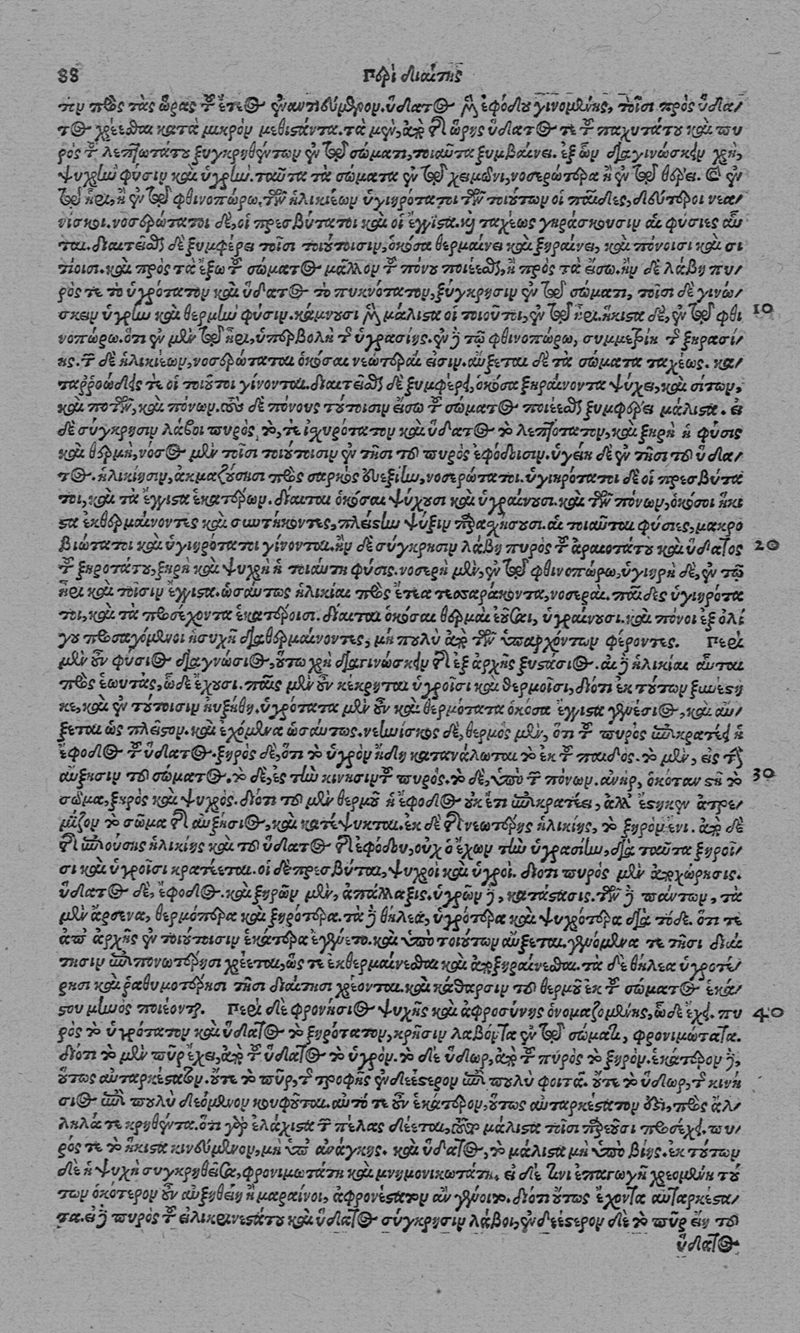 88 Περὶ διαίτης
την πρὸς τὰς ὥρας τοῦ ἔτεος ἐναντιούμενον. ὕδατος μὲν ἐφόδου γινομένης, τοῖσι πρὸς ὕδα-
τος χρέεσθαι κατὰ μικρὸν μεθιστάντα. τὰ μὲν, ἀπὸ τῆς ὥρης ὕδατος τε τοῦ παχυτάτου καὶ πυ-
ρὸς τοῦ λεπτωτάτου ξυγκρηθέντων ἐν τῷ σώματι, τοιαῦτα ξυμβαίνει. ἐξ ὧν διαγινώσκειν χρὴ,
ψυχρὴν φύσιν καὶ ὑγρήν. ταῦτα τὰ σώματα ἐν τῷ χειμῶνι, νοσερώτερα ἢ ἐν τῷ θέρει. καὶ ἐν
τῷ ἦρι, ἢ ἐν τῷ φθινοπώρῳ. τῶν ἡλικιέων ὑγιηρότατοι τῶν τούτων οἱ παῖδες, δεύτεροι νεα-
νίσκοι. νοσερώτατοι δὲ, οἱ πρεσβύτατοι καὶ οἱ ἔγγιστα. καὶ ταχέως γηράσκουσιν αἱ φύσιες αὗ-
ται. διαιτεῖσθαι δὲ ξυμφέρει τοῖσι τούτοισιν, ὁκόσα θερμαίνει καὶ ξηραίνει, καὶ πόνοισι καὶ σι-
τίοισι. καὶ πρὸς τὰ ἔξω τοῦ σώματος μᾶλλον τοὺς πόνους ποιέεσθαι, ἢ πρὸς τὰ εἴσω. ἢν δὲ λάβῃ πυ-
ρὸς τε τὸ ὑγρότατον καὶ ὕδατος τὸ πυκνότατον, ξύγκρησιν ἐν τῷ σώματι, τοῖσι δὲ γινώ-
σκειν ὑγρὴν καὶ θερμὴν φύσιν. κάμνουσι μὲν μάλιστα οἱ τοιοῦτοι, ἐν τῷ ἦρι. ἥκιστα δὲ, ἐν τῷ φθι- 10
νοπώρῳ. ὅτι ἐν μὲν τῷ ἦρι, ὑπερβολὴ τῆς ὑγρασίης. ἐν δὲ τῷ φθινοπώρῳ, συμμετρίη τῆς ξηρασί-
ης. τῶν δὲ ἡλικιέων, νοσερώταται ὁκόσαι νεώτεραί εἰσιν. αὔξεται δὲ τὰ σώματα ταχέως. κα-
ταῤῥοώδεες τε οἱ τοιοῦτοι γίνονται. διαιτεῖσθαι δὲ ξυμφέρει, ὁκόσα ξηραίνοντα ψύχει, καὶ σίτων,
καὶ ποτῶν, καὶ πόνων. τοὺς δὲ πόνους τούτοισιν εἴσω τοῦ σώματος ποιέεσθαι ξυμφέρει μάλιστα. εἰ
δὲ σύγκρησιν λάβοι πυρὸς, τό, τε ἰσχυρότατον καὶ ὕδατος τὸ λεπτότατον, καὶ ξηρὴ ἡ φύσις
καὶ θερμὴ, νοῦσος μὲν τοῖσι τούτοισιν ἐν τῇσι τοῦ πυρὸς ἐφόδοισιν. ὑγιείη δὲ ἐν τῇσι τοῦ ὕδα-
τος. ἡλικίῃσιν, ἀκμαζούσῃσι πρὸς σαρκὸς εὐεξίην, νοσερώτατοι. ὑγιηρότατοι δὲ οἱ πρεσβύτα-
τοι, καὶ τὰ ἔγγιστα ἑκατέρων. δίαιται ὁκόσαι ψύχουσι καὶ ὑγραίνουσι. καὶ τῶν πόνων, ὁκόσοι ἥκι-
στα ἐκθερμαίνοντες καὶ συντήκοντες, πλείστην ψύξιν παρασχήσουσι. αἱ τοιαῦται φύσιες, μακρο-
βιώτατοι καὶ ὑγιηρότατοι γίνονται. ἢν δὲ σύγκρησιν λάβῃ πυρὸς τοῦ ἀραιοτάτου καὶ ὕδατος 20
τοῦ ξηροτάτου, ξηρὴ καὶ ψυχρὴ ἡ τοιαύτη φύσις. νοσερὴ μὲν, ἐν τῷ φθινοπώρῳ, ὑγιηρὴ δὲ, ἐν τῷ
ἦρι καὶ τοῖσιν ἔγγιστα. ὡσαύτως ἡλικίαι πρὸς ἔτεα τεσσαράκοντα, νοσεραί. παῖδες ὑγιηρότα-
τοι, καὶ τὰ προσέχοντα ἑκατέροισι. δίαιται ὁκόσαι θερμαὶ ἐοῦσαι, ὑγραίνουσι. καὶ πόνοι ἐξ ὀλί-
γου προσαγόμενοι ἡσυχῇ διαθερμαίνοντες, μὴ πολὺ ἀπὸ τῶν ὑπαρχόντων φέροντες. Περὶ
μὲν οὖν φύσιος διαγνώσιος, οὕτω χρὴ διαγινώσκειν τῆς ἐξ ἀρχῆς ξυστάσιος. αἱ δὲ ἡλικίαι αὗται
πρὸς ἑωυτὰς, ὧδε ἔχουσι. παῖς μὲν οὖν κέκρηται ὑγροῖσι καὶ θερμοῖσι, διότι ἐκ τούτων ξυνέστη-
κε, καὶ ἐν τούτοισιν ηὐξήθη. ὑγρότατα μὲν οὖν καὶ θερμότατα ὁκόσα ἔγγιστα γενέσιος, καὶ αὔ-
ξεται ὡς πλεῖστον. καὶ ἐχόμενα ὡσαύτως. νεηνίσκος δὲ, θερμὸς μὲν, ὅτι τοῦ πυρὸς ἐπικρατέει ἡ
ἔφοδος τοῦ ὕδατος. ξηρὸς δὲ, ὅτι τὸ ὑγρὸν ἤδη κατανάλωται τὸ ἐκ τοῦ παιδός. τὸ μὲν, εἰς τὴν
αὔξησιν τοῦ σώματος. τὸ δὲ, ἐς τὴν κίνησιν τοῦ πυρὸς. τὸ δὲ, ὑπὸ τῶν πόνων. ἀνὴρ, ὁκόταν στῇ τὸ 30
σῶμα, ξηρὸς καὶ ψυχρός. διότι τοῦ μὲν θερμοῦ ἡ ἔφοδος οὐκ ἔτι ἐπικρατέει, ἀλλ' ἕστηκεν ἀτρε-
μίζον τὸ σῶμα τῆς αὐξήσιος, καὶ κατέψυκται. ἐκ δὲ τῆς νεωτέρης ἡλικίης, τὸ ξηρὸν ἔνι. ἀπὸ δὲ
τῆς ἐπιούσης ἡλικίης καὶ τοῦ ὕδατος τῆς ἐφόδου, οὐχ ὁ ἔχων τὴν ὑγρασίην, διὰ ταῦτα ξηροῖ-
σι καὶ ὑγροῖσι κρατέεται. οἱ δὲ πρεσβῦται, ψυχροὶ καὶ ὑγροί. διότι πυρὸς μὲν ἀποχώρησις.
ὕδατος δὲ, ἔφοδος. καὶ ξηρῶν μὲν, ἀπάλλαξις. ὑγρῶν δὲ, κατάστασις. τῶν δὲ πάντων, τὰ
μὲν ἄρσενα, θερμότερα καὶ ξηρότερα. τὰ δὲ θήλεα, ὑγρότερα καὶ ψυχρότερα διὰ τόδε. ὅτι τε
ἀπ' ἀρχῆς ἐν τούτοισιν ἑκάτερα ἐγένετο. καὶ ὑπὸ τοιούτων αὔξεται. γενόμενα τε τῇσι διαί-
τῃσιν ἐπιπονωτέρῃσι χρέεται, ὥς τε ἐκθερμαίνεσθαι καὶ ἀποξηραίνεσθαι. τὰ δὲ θήλεα ὑγροτέ-
ρῃσι καὶ ῥαθυμοτέρῃσι τῇσι διαίτῃσι χρέονται. καὶ κάθαρσιν τοῦ θερμοῦ ἐκ τοῦ σώματος ἑκά-
στου μηνὸς ποιέονται. Περὶ δὲ φρονήσιος ψυχῆς καὶ ἀφροσύνης ὀνομαζομένης, ὧδε ἔχει. πυ- 40
ρὸς τὸ ὑγρότατον καὶ ὕδατος τὸ ξηρότατον, κρῆσιν λαβόντα ἐν τῷ σώματι, φρονιμώτατα.
διότι τὸ μὲν πῦρ ἔχει, ἀπὸ τοῦ ὕδατος τὸ ὑγρόν. τὸ δὲ ὕδωρ, ἀπὸ τοῦ πυρὸς τὸ ξηρόν. ἑκάτερον δὲ,
οὕτως αὐταρκέστατον. οὔτε τὸ πῦρ, τῆς τροφῆς ἐνδεέστερον ἐπὶ πολὺ φοιτᾷ. οὔτε τὸ ὕδωρ, τῆς κινή-
σιος ἐπὶ πουλὺ δεόμενον κουφοῦται. αὐτό τε οὖν ἑκάτερον, οὕτως αὐταρκέστατόν ἐστι, πρὸς ἄλ-
ληλά τε κρηθέντα. ὅτι γὰρ ἐλάχιστα τοῦ πέλας δέεται, τοῦτο μάλιστα τοῖσι παρεοῦσι προσέχει. πυ-
ρός τε τὸ ἥκιστα κινεύμενον, μὴ ὑπ' ἀνάγκης. καὶ ὕδατος, τὸ μάλιστα μὴ ὑπὸ βίης. ἐκ τούτων
δὲ ἡ ψυχὴ συγκρηθεῖσα, φρονιμωτάτη καὶ μνημονικωτάτη. εἰ δέ τινι ἐπαγωγῇ χρεομένη τού-
των ὁκότερον οὖν αὐξηθείη ἢ μαραίνοι, ἀφρονέστατον ἂν γένοιτο. διότι οὕτως ἔχοντα αὐταρκέστα-
τα. εἰ δὲ πυρὸς τοῦ εἰλικρινεστάτου καὶ ὕδατος σύγκρησιν λάβοι, ἐνδεέστερον δὲ τὸ πῦρ εἴη τοῦ
ὕδατος